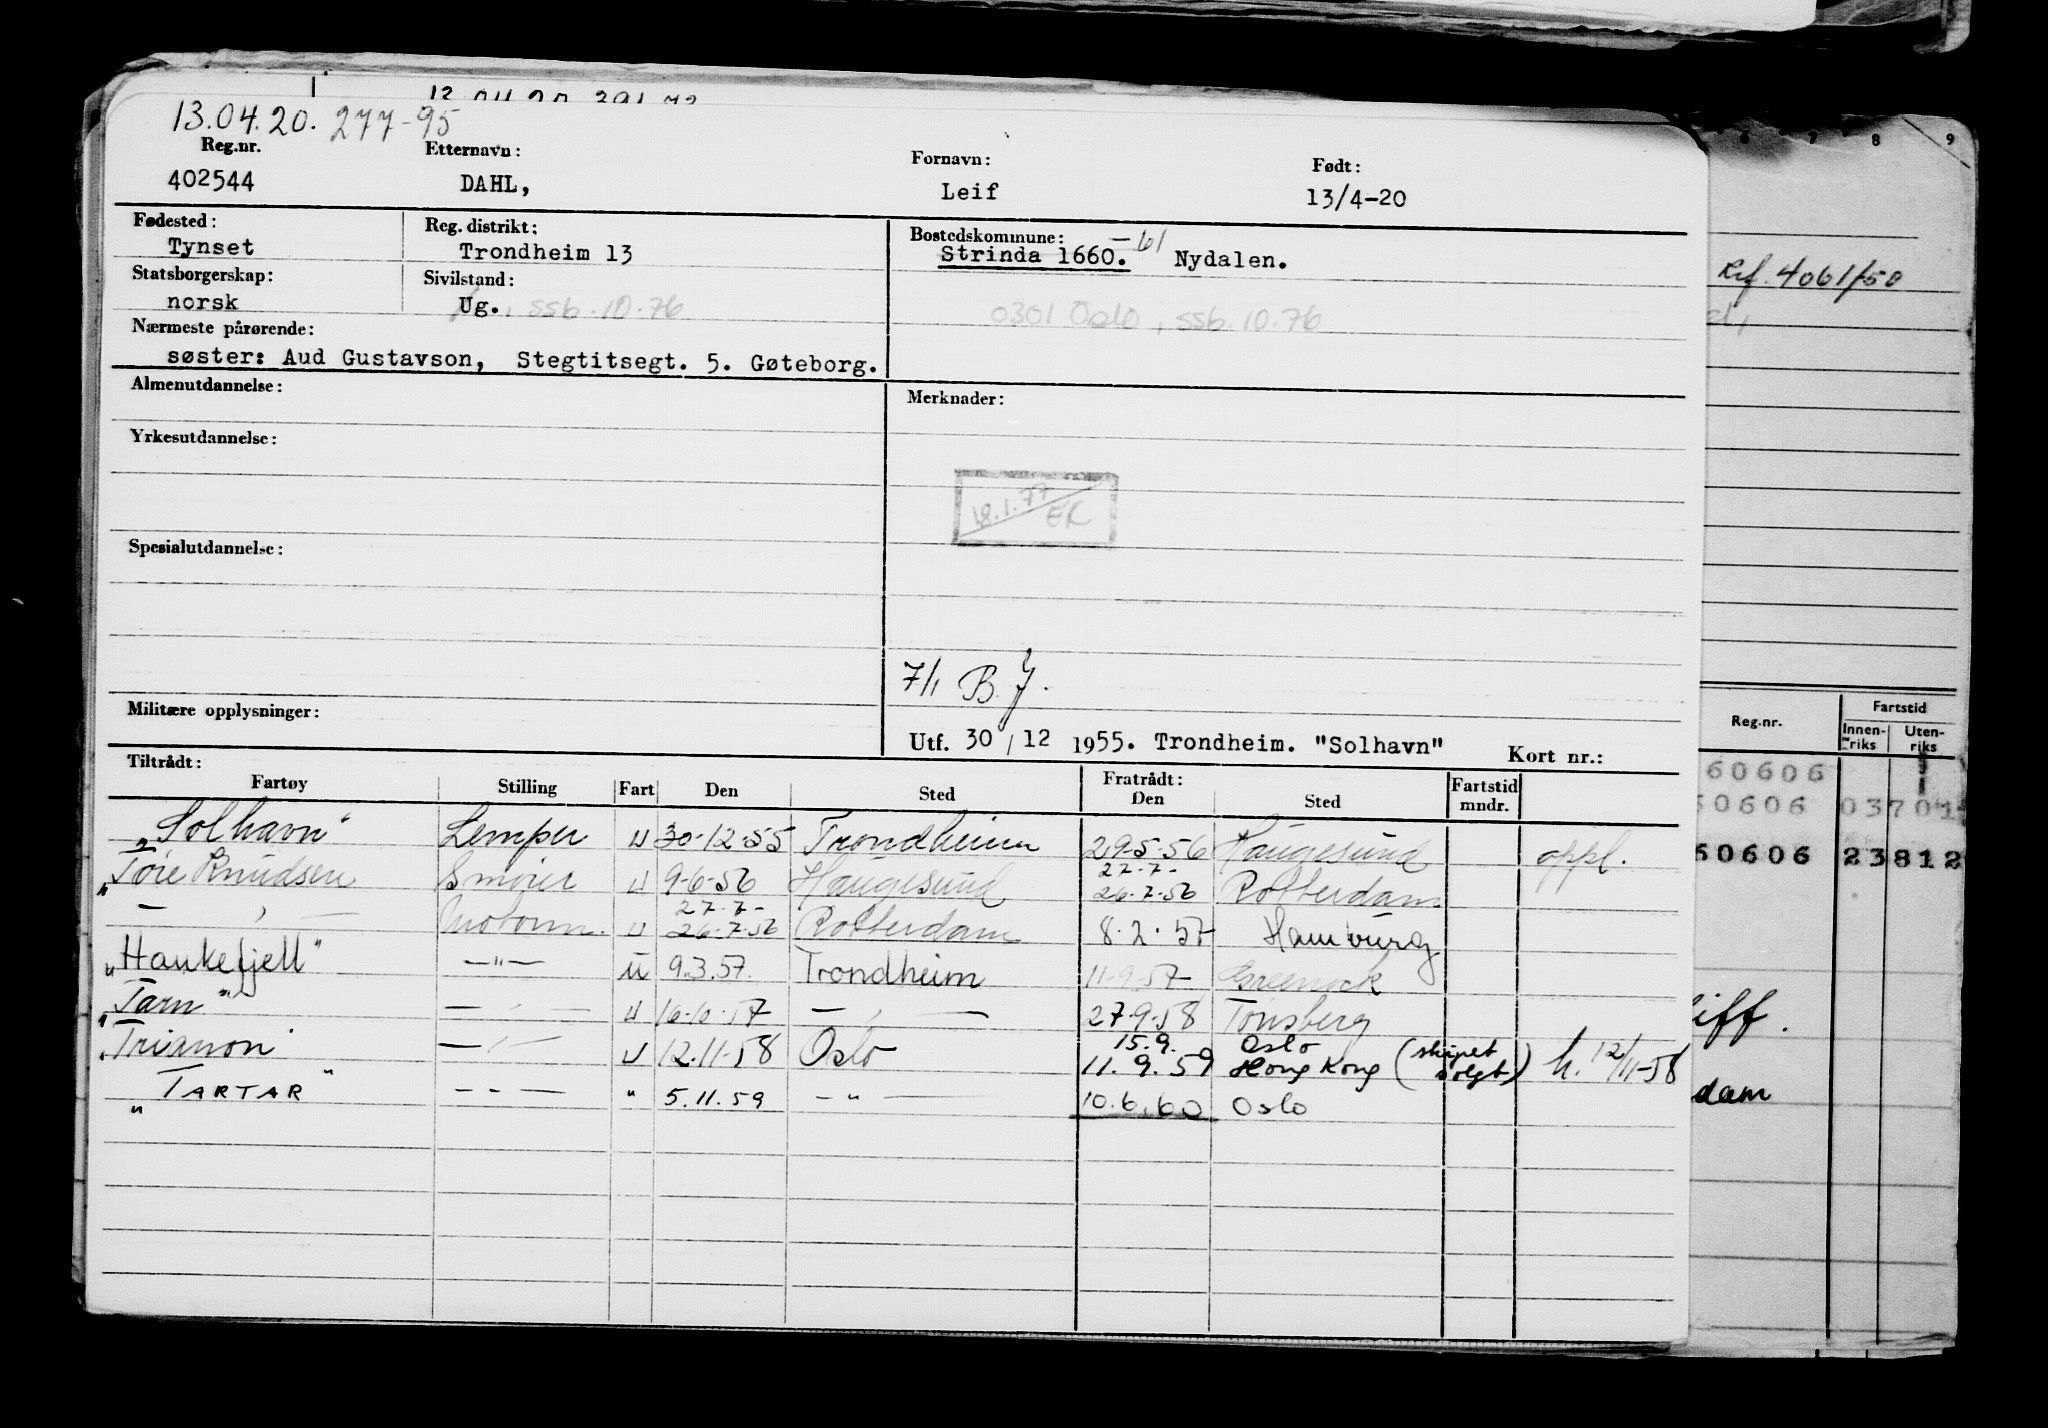 13.04.20. 277-95
Reg.nr. Etternavn: Fornavn: Født:
402544 DAHL, Leif 13/4-20
Fødested: Reg. distrikt: Bostedskommune:
Tynset Trondheim 13 Strinda 1660. -61 Nydalen.
Statsborgerskap: Sivilstand:
norsk Ug. , ssb. 10.76 0301 Oslo, ssb. 10.76
Nærmeste pårørende:
søster: Aud Gustavson, Stegtitsegt. 5. Gøteborg.
Almenutdannelse: Merknader:
Yrkesutdannelse:
18.1.77 EK
Spesialutdannelse:
7/1 B.J.
Militære opplysninger:
Utf. 30/12 1955. Trondheim. "Solhavn" Kort nr.:
Tiltrådt: Fratrådt:
Fartøy Stilling Fart Den Sted Den Sted Fartstid mndr.
"Solhavn" Lemper u 30-12-55 Trondheim 29-5-56 Haugesund oppl.
27.7-
"Tore Knudsen Smører u 9-6-56 Haugesund 26.7.56 Rotterdam
27.7-
— " — Motorm. u 26.7.56 Rotterdam 8.2.57 Hamburg
"Haukefjell" —"— u 9.3.57. Trondheim 11-9-57 Greenock
"Tarn" — " — u 16-10-57 — " — 27-9-58 Tønsberg
15.9. Oslo
"Trianon" — " — u 12.11-58 Oslo 11.9.59 Hong Kong (skipet solgt) h. 12/11-58
"TARTAR" — " — " 5.11.59 — " — 10.6.60 Oslo
6 7 8 9
Ref. 4061/50
Reg.nr. Fartstid
Innen-riks Uten-riks
60606
60606 03701
60606 23812
iff.
dam